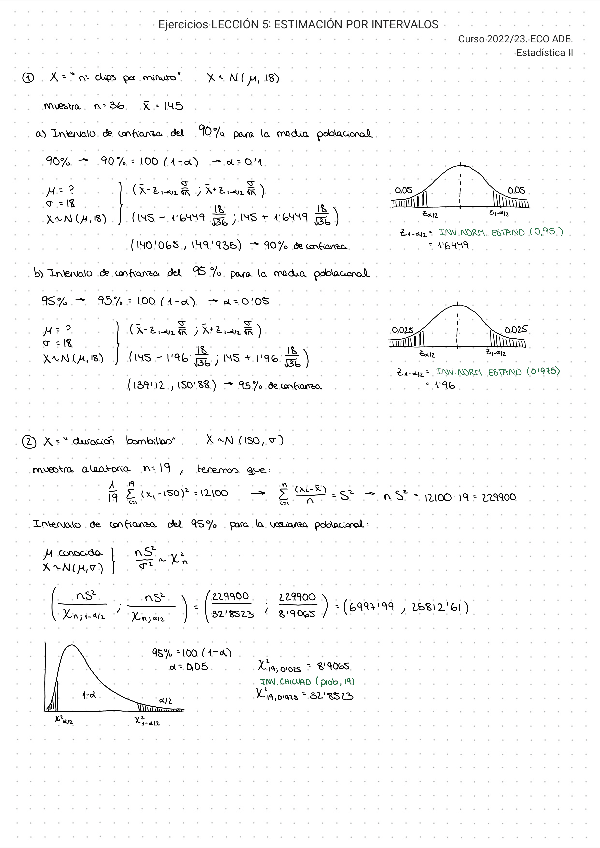 Ejercicios LECCIÓN 5: ESTIMACIÓN POR INTERVALOS
Curso 2022/23. ECO ADE.
Estadística II
① X = "nº clips por minuto" X ~ N(μ, 18)
muestra n=36 x̄ = 145
a) Intervalo de confianza del 90% para la media poblacional
90% → 90% = 100 (1-α) → α = 0'1
μ = ? (x̄ - z₁₋α/₂ σ/√n ; x̄ + z₁₋α/₂ σ/√n)
σ = 18
X ~ N(μ, 18) (145 - 1'6449 18/√36 ; 145 + 1'6449 18/√36)
(140'065, 149'935) → 90% de confianza
0.05 0.05
zα/₂ z₁₋α/₂
z₁₋α/₂ = INV.NORM. ESTAND (0,95)
= 1'6449
b) Intervalo de confianza del 95% para la media poblacional
95% → 95% = 100 (1-α) → α = 0'05
μ = ? (x̄ - z₁₋α/₂ σ/√n ; x̄ + z₁₋α/₂ σ/√n)
σ = 18
X ~ N(μ, 18) (145 - 1'96 18/√36 ; 145 + 1'96 18/√36)
(139'12, 150'88) → 95% de confianza
0.025 0.025
zα/₂ z₁₋α/₂
z₁₋α/₂ = INV.NORM. ESTAND (0'975)
= 1'96
② X = "duración bombillas" X ~ N(150, σ)
muestra aleatoria n=19, tenemos que:
1/19 Σ (xᵢ - 150)² = 12100 → Σ (xᵢ - x̄)/n = S² → n S² = 12100·19 = 229900
Intervalo de confianza del 95% para la varianza poblacional:
μ conocida nS²/σ² ~ χ²ₙ
X ~ N(μ, σ)
(nS²/χn;1-α/2 ; nS²/χn;α/2) = (229900/32'8523 ; 229900/8'9065) = (6997'99, 25812'61)
95% = 100 (1-α)
α = 0,05
χ²19,0'025 = 8'9065
INV.CHICUAD (prob, 19)
χ²19,0'975 = 32'8523
1-α α/2
χ²α/2 χ²1-α/2